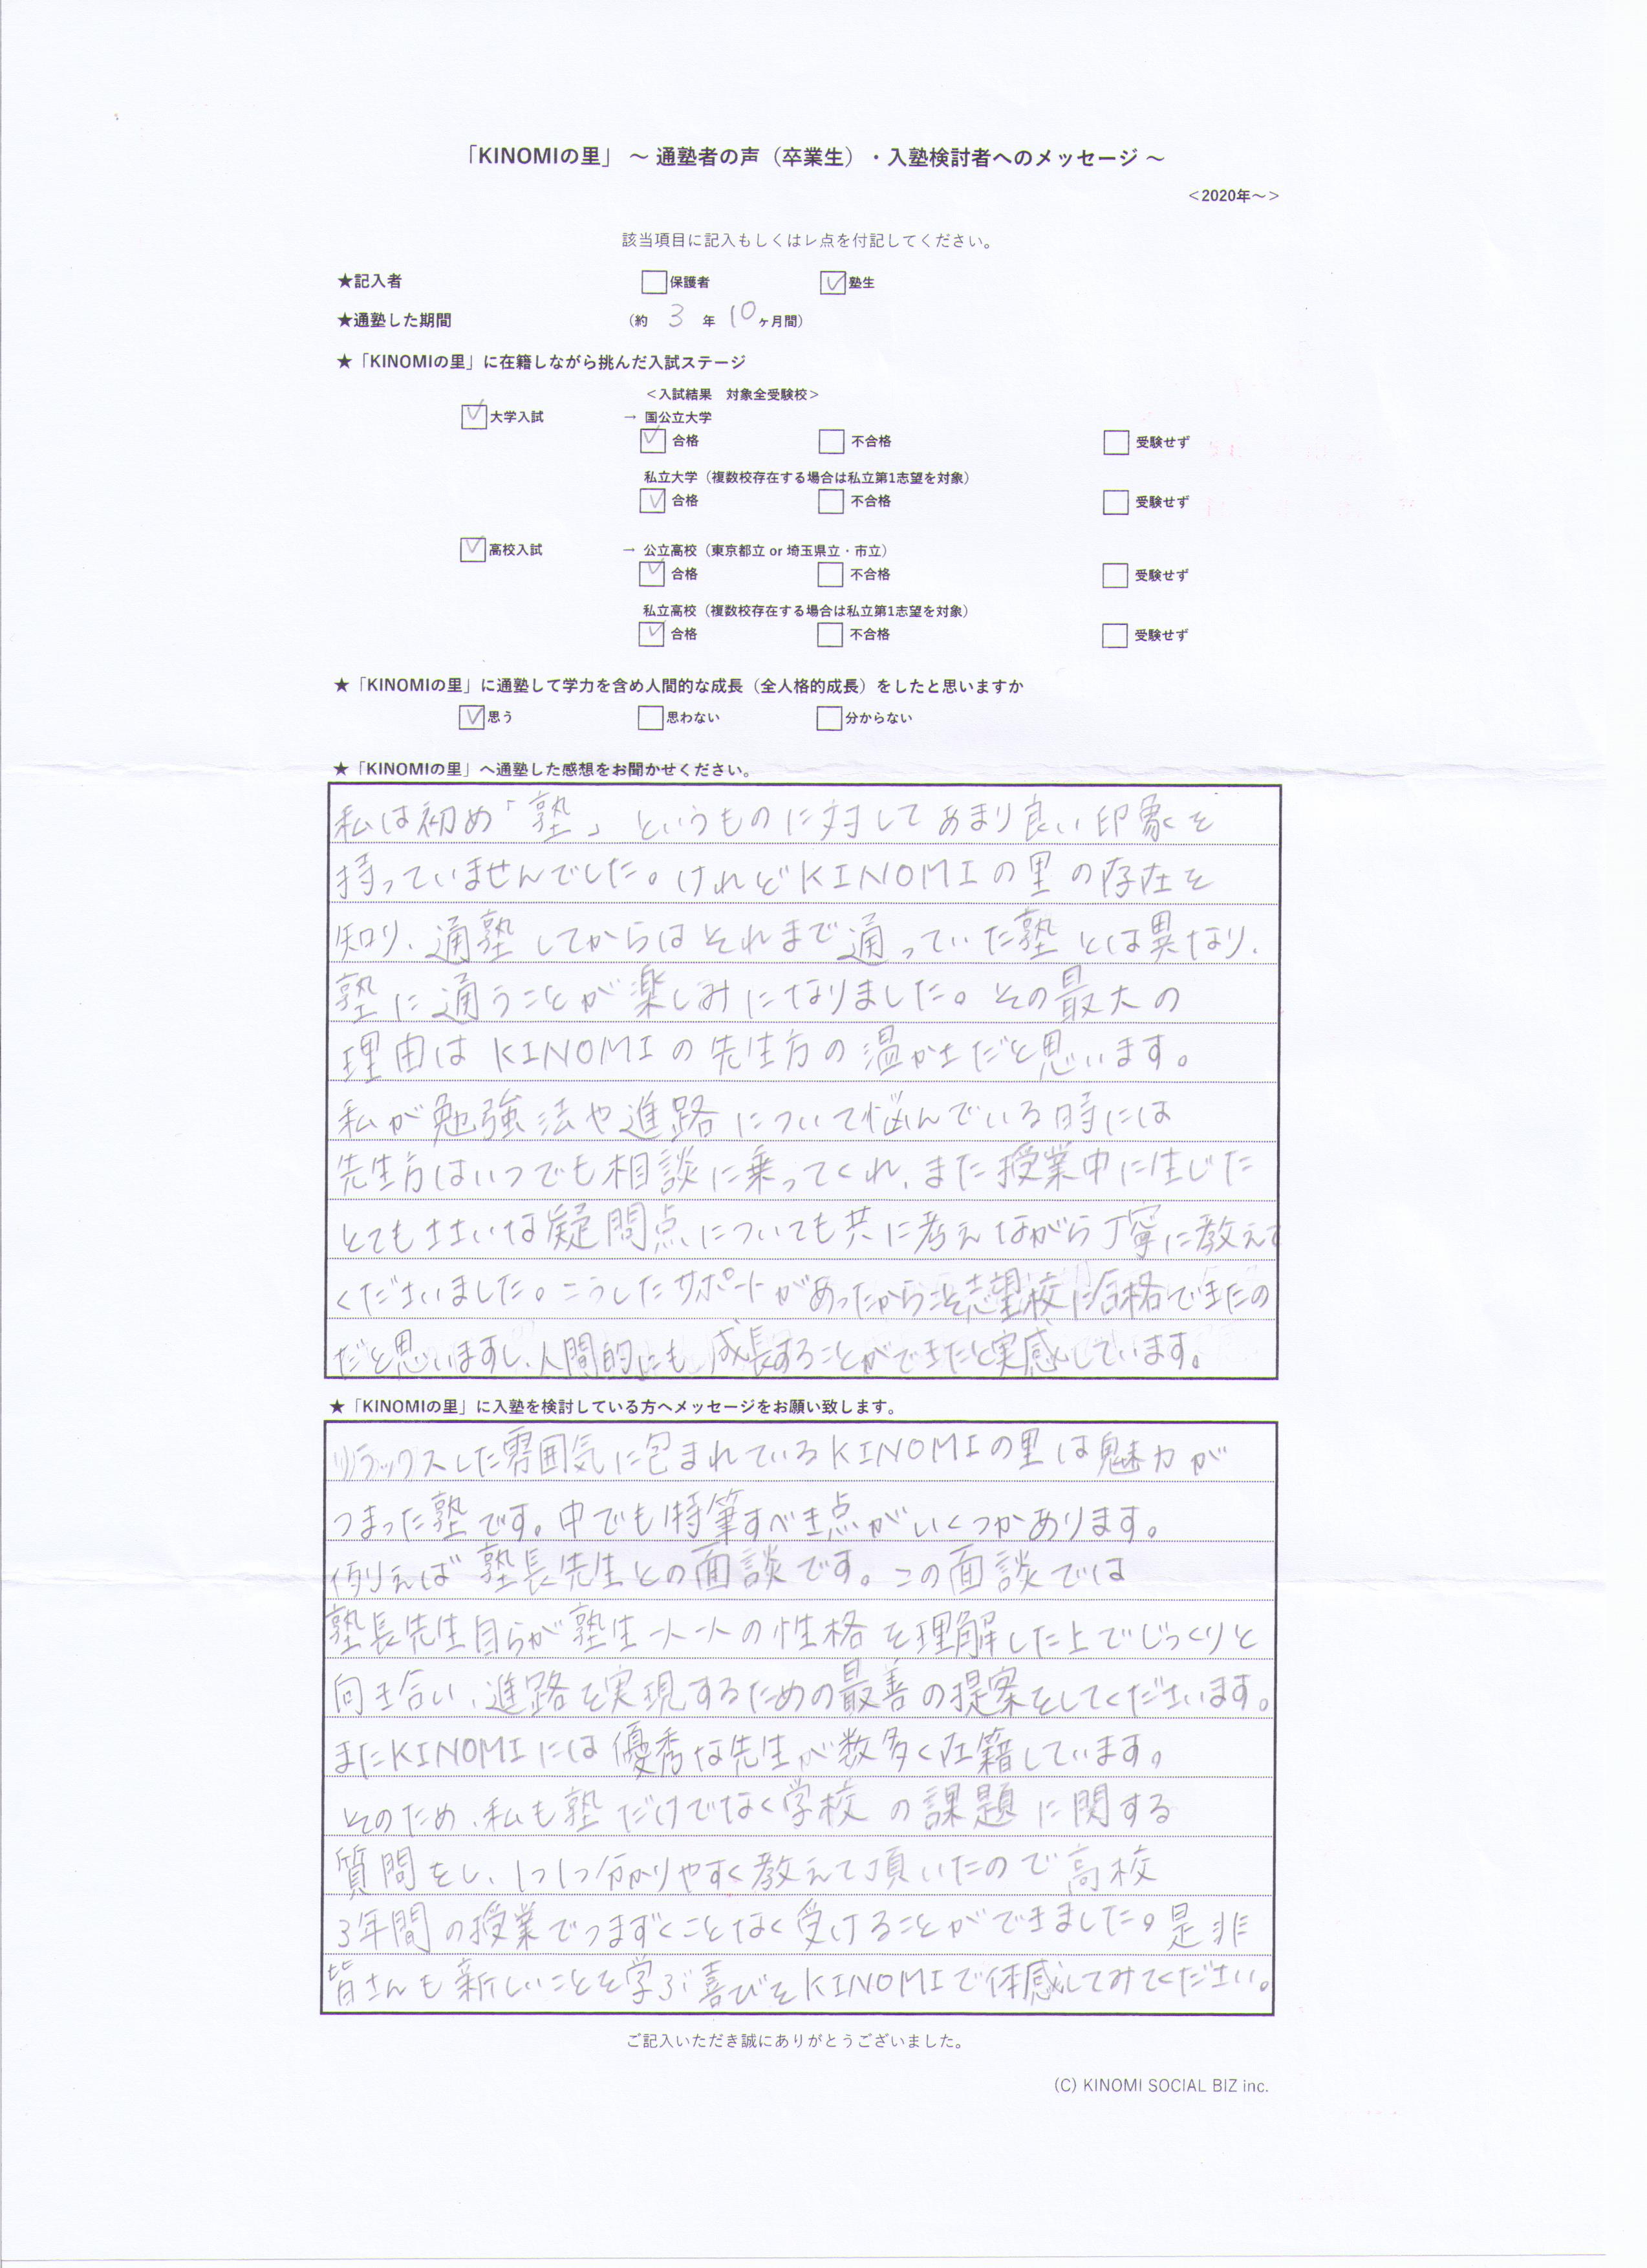 「KINOMIの里」 ～ 通塾者の声（卒業生）・入塾検討者へのメッセージ ～
＜2020年～＞
該当項目に記入もしくはレ点を付記してください。
★記入者 □保護者 ☑塾生
★通塾した期間 （約 3 年 10 ヶ月間）
★「KINOMIの里」に在籍しながら挑んだ入試ステージ
＜入試結果 対象全受験校＞
☑大学入試 → 国公立大学
☑ 合格 □ 不合格 □ 受験せず
私立大学（複数校存在する場合は私立第1志望を対象）
☑ 合格 □ 不合格 □ 受験せず
☑高校入試 → 公立高校（東京都立 or 埼玉県立・市立）
☑ 合格 □ 不合格 □ 受験せず
私立高校（複数校存在する場合は私立第1志望を対象）
☑ 合格 □ 不合格 □ 受験せず
★「KINOMIの里」に通塾して学力を含め人間的な成長（全人格的成長）をしたと思いますか
☑思う □思わない □分からない
★「KINOMIの里」へ通塾した感想をお聞かせください。
私は初め「塾」というものに対してあまり良い印象を
持っていませんでした。けれどKINOMIの里の存在を
知り、通塾してからはそれまで通っていた塾とは異なり、
塾に通うことが楽しみになりました。その最大の
理由はKINOMIの先生方の温かさだと思います。
私が勉強法や進路について悩んでいる時には
先生方はいつでも相談に乗ってくれ、また授業中に生じた
とてもささいな疑問点についても共に考えながら丁寧に教えて
くださいました。こうしたサポートがあったからこそ志望校に合格できたの
だと思いますし、人間的にも成長することができたと実感しています。
★「KINOMIの里」に入塾を検討している方へメッセージをお願い致します。
リラックスした雰囲気に包まれているKINOMIの里は魅力が
つまった塾です。中でも特筆すべき点がいくつかあります。
例えば塾長先生との面談です。この面談では
塾長先生自らが塾生一人一人の性格を理解した上でじっくりと
向き合い、進路を実現するための最善の提案をしてくださいます。
またKINOMIには優秀な先生が数多く在籍しています。
そのため、私も塾だけでなく学校の課題に関する
質問をし、1つ1つ分かりやすく教えて頂いたので高校
3年間の授業でつまずくことなく受けることができました。是非
皆さんも新しいことを学ぶ喜びをKINOMIで体感してみてください。
ご記入いただき誠にありがとうございました。
(C) KINOMI SOCIAL BIZ inc.